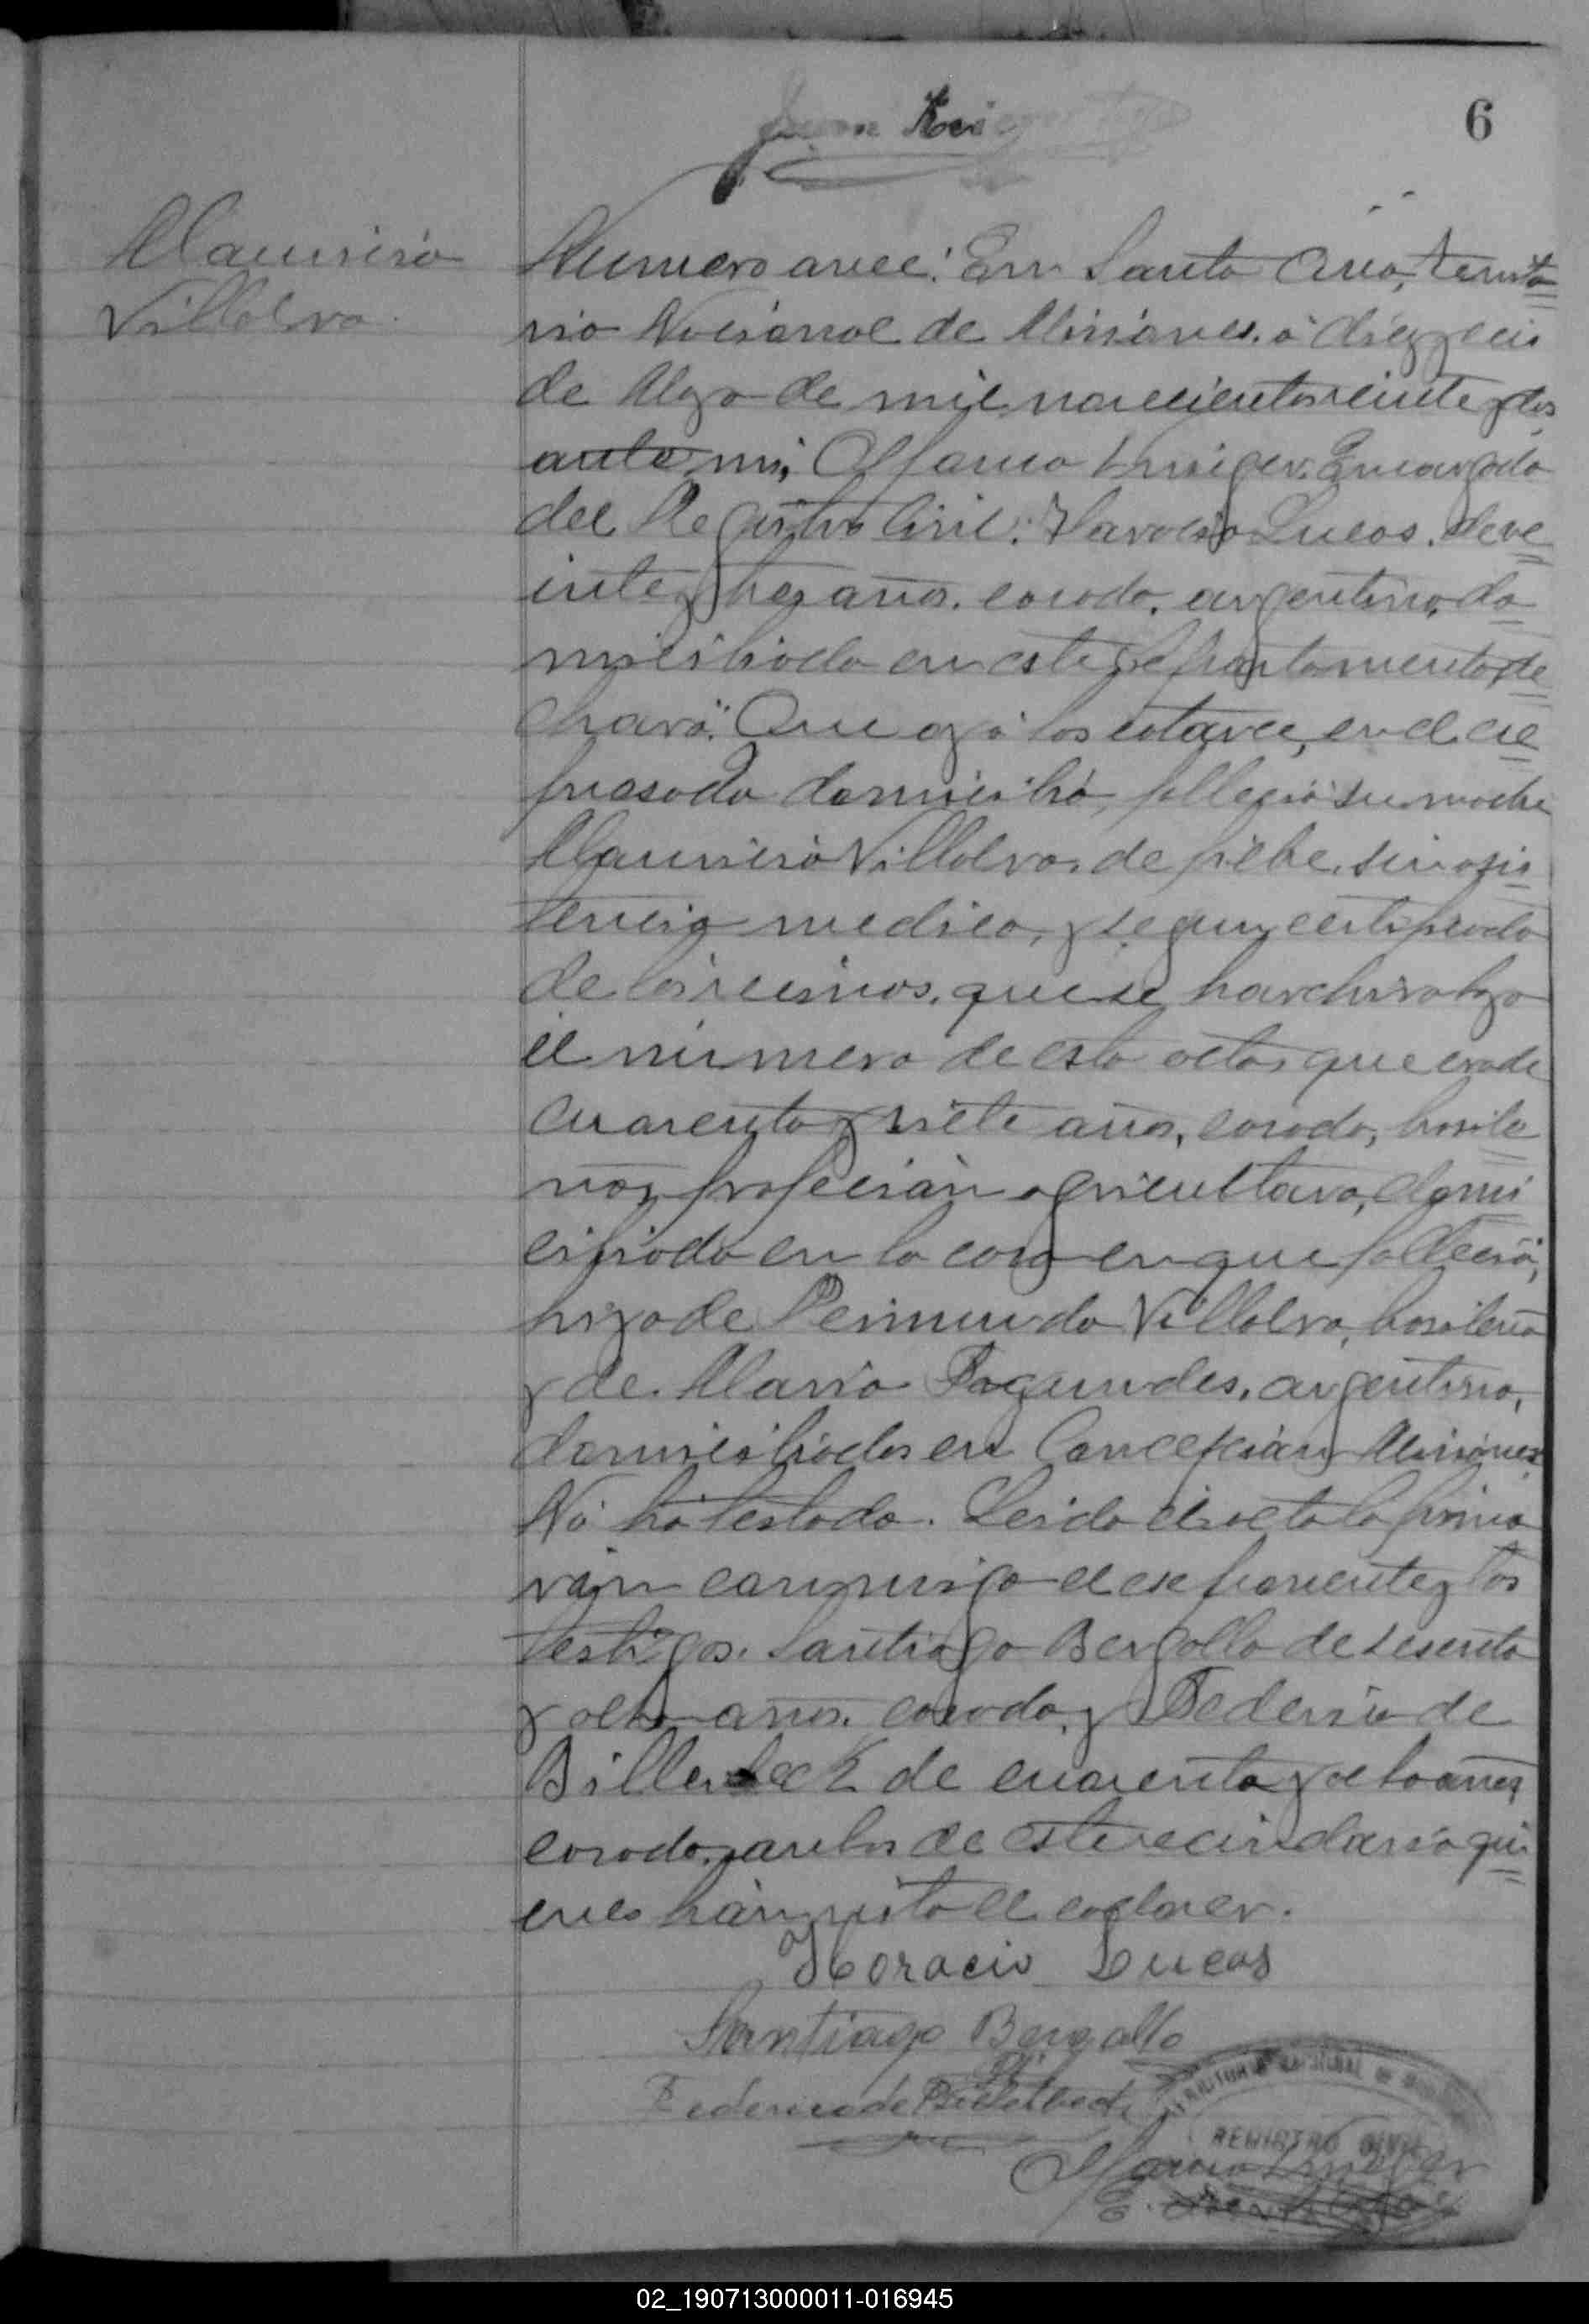 6
Mauricio
Villalva.
Numero once: En Santa Ana, territo=
rio Nacional de Misiones, à diez y seis
de Mayo de mil novecientos veinte y dos,
ante mi, Marco Kruiger, Encargado
del Registro Civil: Horacio Lucas, de ve=
inte y tres años, casado, argentino, do=
miciliado en este departamento, de=
claró: Que oy á las catorce, en el ex=
presado domicilio, fallecio su madre
Mauricia Villalva, de fiebre, sin asis=
tencia medica, y segun certificado
de los vecinos, que se harchiva bajo
el número de esta acta, que era de
cuarenta y siete años, casada, brasile=
na, profecián agricultora, domi=
ciliada en la casa en que falleció,
hija de Reimundo Villalva, brasileño
y de Maria Fagundes, argentina,
domiciliados en Concepcián Misiones.
No há testado. Leida el acta la firma=
rán conmigo el exponente y los
testigos. Santiago Bergallo de sesenta
y ocho años, casado, y Federico de
Billerbeck de cuarenta y ocho años,
casado, ambos de este vecindario qui=
enes hán visto el cadaver.
Horacio Lucas
Santiago Bergallo
Federico de Billerbeck
REGISTRO CIVIL
02_190713000011-016945